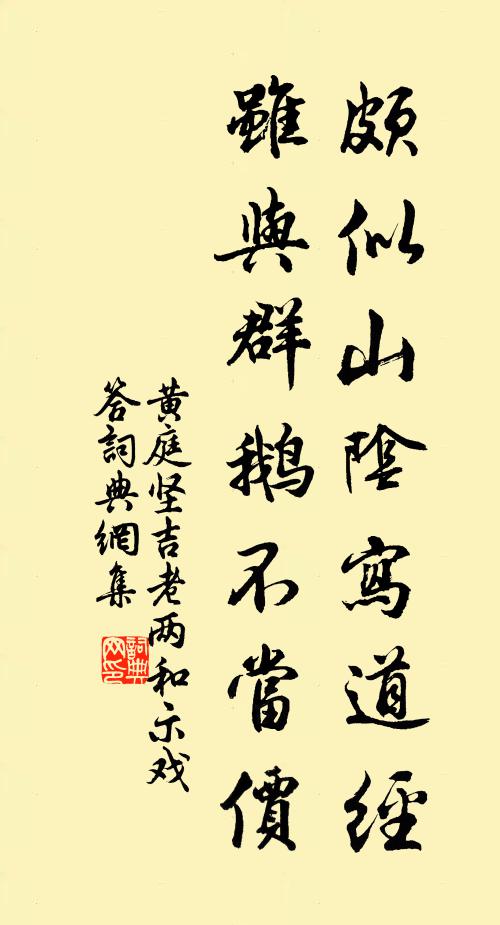 頗似山陰寫道經
雖與群鵝不當價
黄庭坚吉老两和示戏
答詞典網集
詞典网印